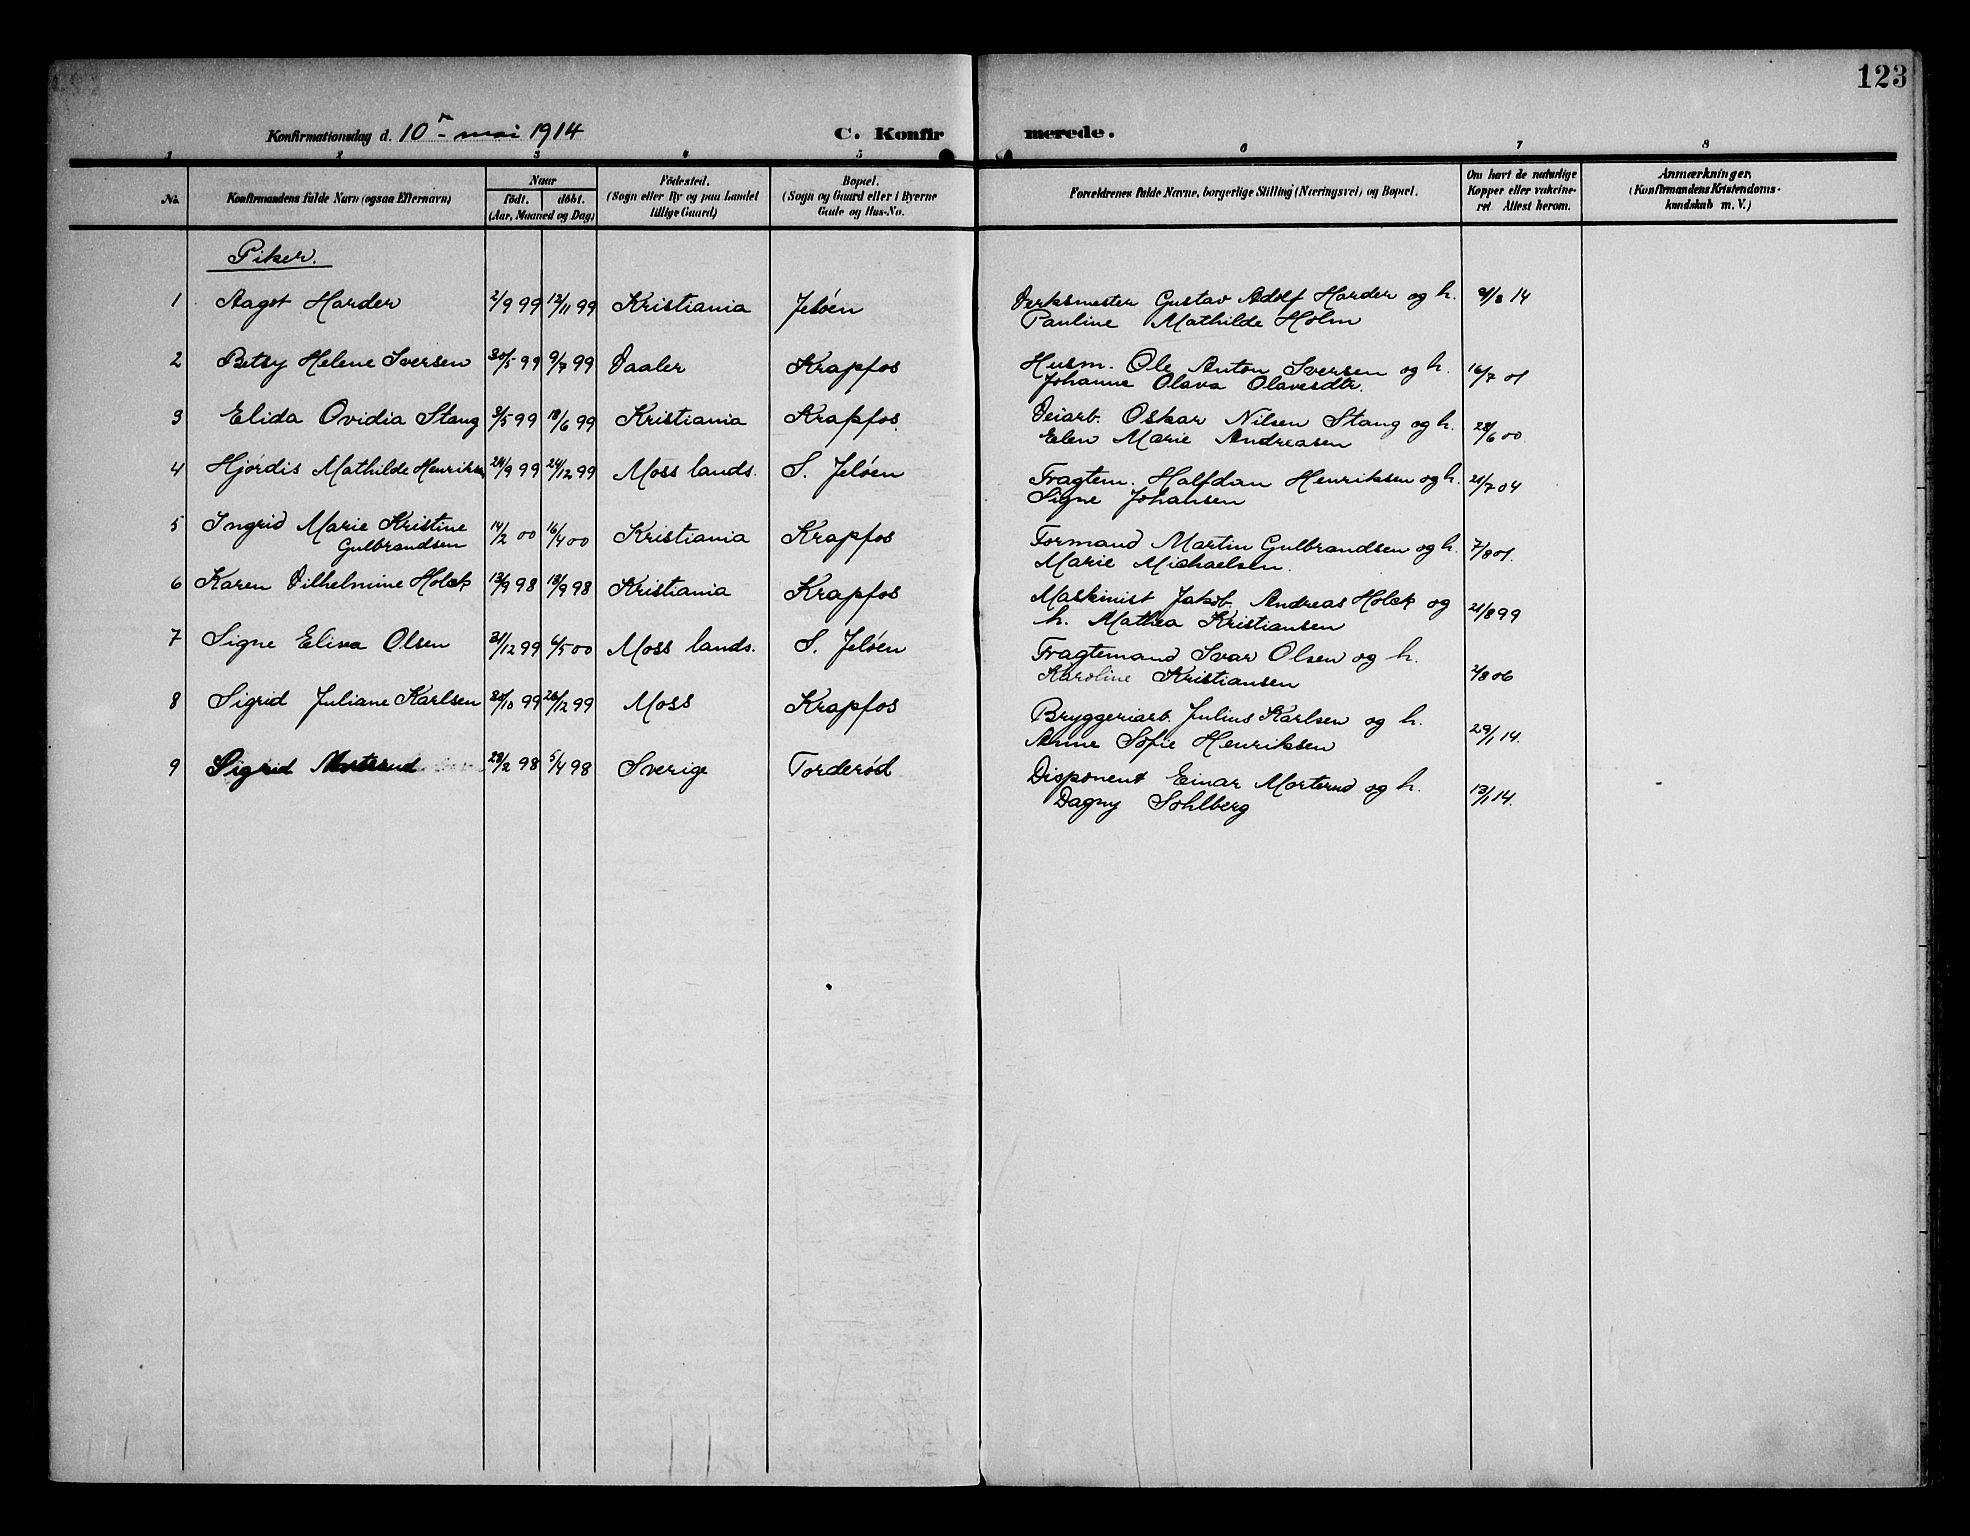 123
Konfirmationsdag d. 10 mai 1914 C. Konfirmerede.
1 2 3 4 5 6 7 8
No. Konfirmandens fulde Navn (ogsaa Efternavn) Naar födt. döbt. (Aar, Maaned og Dag) Födested. (Sogn eller By og paa Landet tillige Gaard) Bopæl. (Sogn og Gaard eller i Byerne Gade og Hus-No. Forældrenes fulde Navne, borgerlige Stilling (Næringsvei) og Bopæl. Om havt de naturlige Kopper eller vakcineret Attest herom. Anmærkninger, (Konfirmandens Kristendomskundskab m. V.)
Piker.
1 Aagot Harder 2/9 99 12/11 99 Kristiania Jeløen Verksmester Gustav Adolf Harder og h. 9/3 14
Pauline Mathilde Holm
2 Betsy Helene Iversen 30/5 99 9/7 99 Vaaler Krapfos Husm. Ole Anton Iversen og h. 16/7 01
Johanne Olava Olavesdtr.
3 Elida Ovidia Stang 3/5 99 18/6 99 Kristiania Krapfos. Veiarb. Oskar Nilsen Stang og h. 28/6 00
Elen Marie Andreasen
4 Hjørdis Mathilde Henriksen 24/9 99 24/12 99 Moss lands. S. Jeløen Fragtem. Halfdan Henriksen og h. 21/7 04
Signe Johansen
5 Ingrid Marie Kristine 14/2 00 16/4 00 Kristiania Krapfos Formand Martin Gulbrandsen og h. 7/8 01.
Gulbrandsen Marie Michaelsen.
6 Karen Vilhelmine Holck 13/9 98 18/9 98 Kristiania Krapfos Maskinist Jakob Andreas Holck og 21/8 99
h. Mathea Kristiansen
7 Signe Eliva Olsen 31/12 99 6/5 00 Moss lands. S. Jeløen Fragtemand Ivar Olsen og h. 2/8 06
Karoline Kristiansen
8 Sigrid Juliane Karlsen 30/10 99 26/12 99 Moss Krapfos Bryggeriarb. Julius Karlsen og h. 29/1 14.
Anne Sofie Henriksen
9 Sigrid Mortsrud 28/2 98 5/4 98 Sverige Torderød Disponent Einar Mortsrud og h. 13/1 14.
Dagny Sohlberg